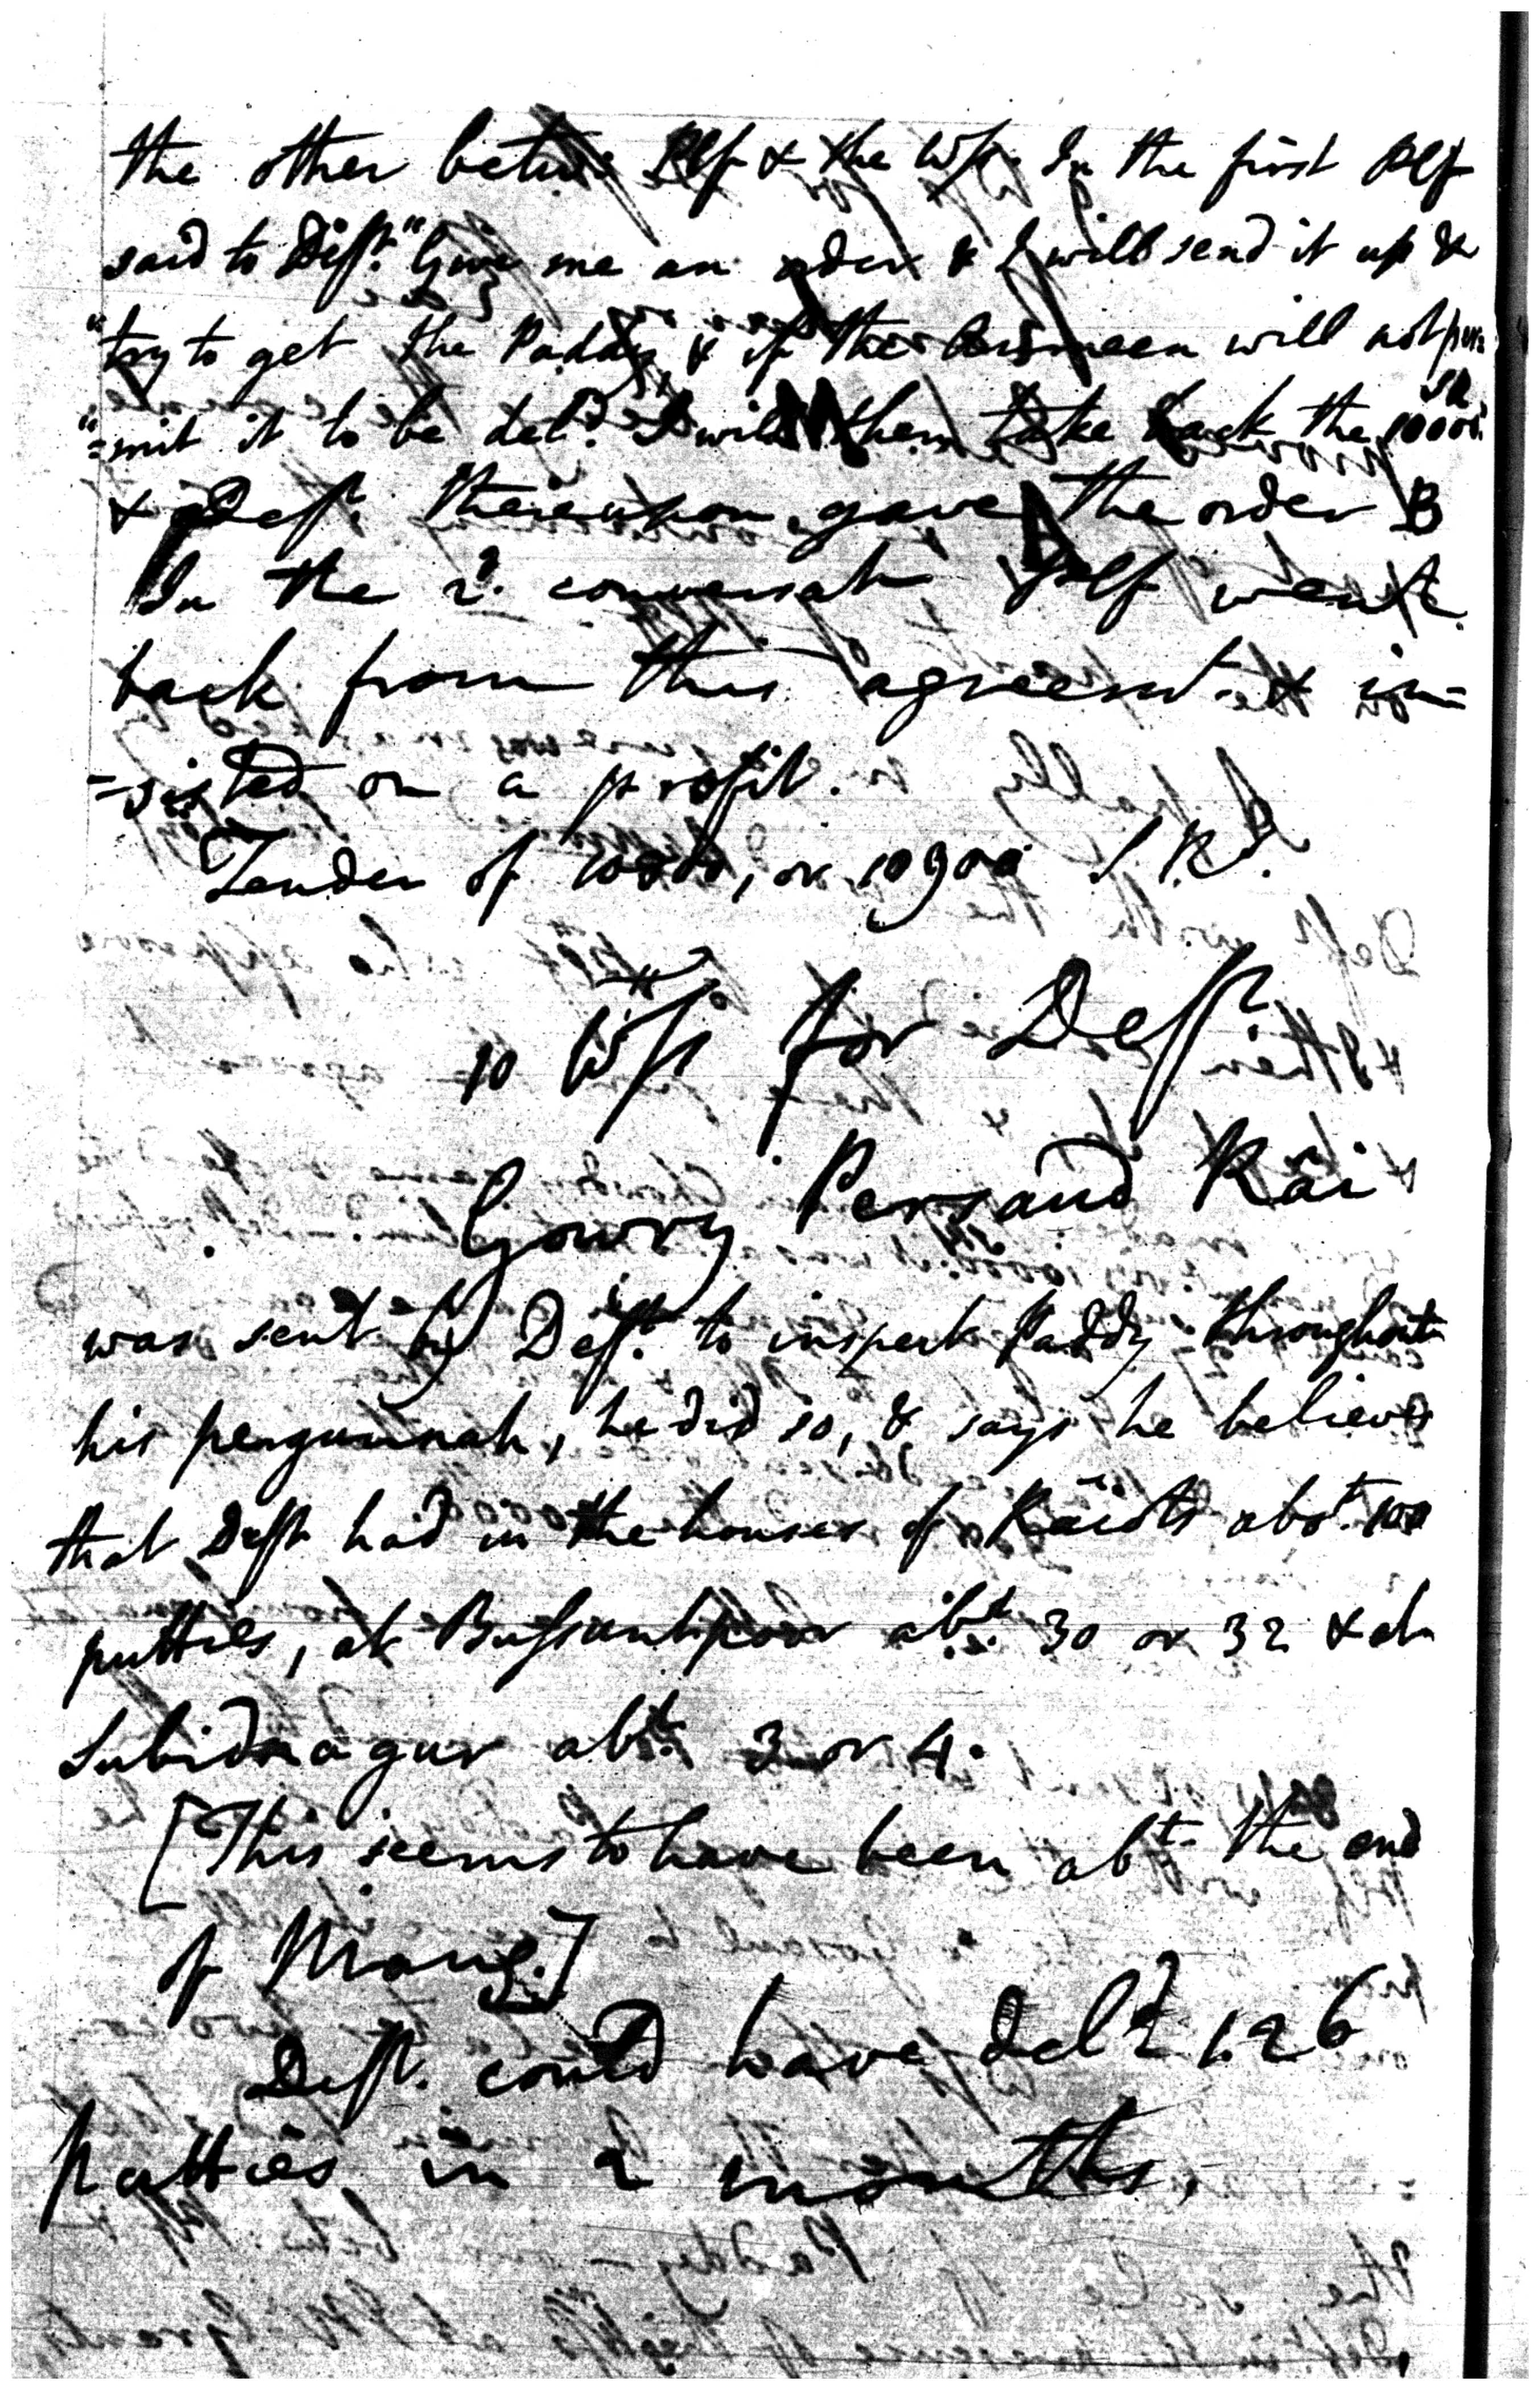 the other betw: Plf & the Wss. In the first Plf
said to Deft. "Give me an order & I will send it up &
"try to get the Paddy, & if the will not per=
"=mit it to be deld. I will then take back the SR 10000.
& Deft. thereupon gave the order B
In the 2d. conversatn Plf went
back from this agreemt. & in=
=sisted on a profit.
Tender of 10800, or 10900 S.Rs.
10 Wss for Deft.
Gowry Persaud Räi
was sent by Deft. to inspect Paddy throughout
his pergunnah, he did so, & says he believes
that Deft had in the houses of Räiots abt. 100
putties, at Bussuntpoor abt. 30 or 32 & at
Subidnagur abt. 3 or 4.
[This seems to have been abt. the end
of Maug.]
Deft. could have deld 126
putties in 2 months.